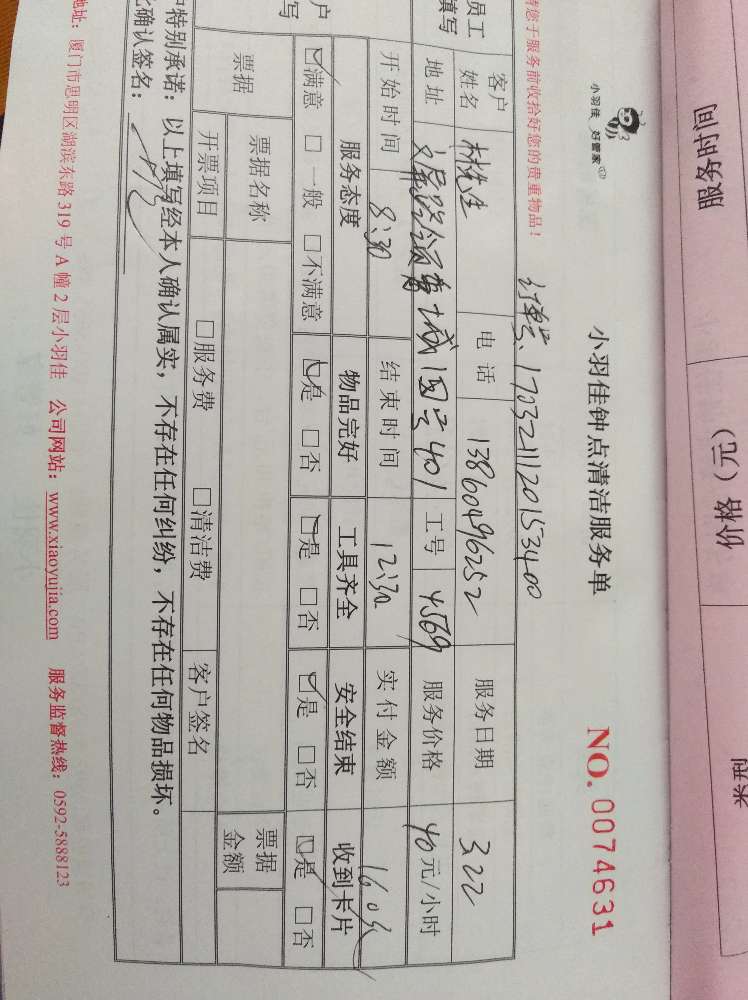 服务时间
价格（元）
小羽佳 好管家
小羽佳钟点清洁服务单
NO. 0074631
您于服务前收拾好您的贵重物品！
员工
填写
客户
姓名
林先生
电话
13860496252
服务日期
3.22
地址
401
工号
4569
服务价格
40元/小时
开始时间
8:30
结束时间
12:30
实付金额
160元
户
写
服务态度
物品完好
工具齐全
安全结束
收到卡片
□满意 □一般 □不满意
□是 □否
□是 □否
□是 □否
□是 □否
票据
票据名称
票据
金额
开票项目
□服务费
□清洁费
客户签名
特别承诺：以上填写经本人确认属实，不存在任何纠纷，不存在任何物品损坏。
确认签名：
地址：厦门市思明区湖滨东路319号A幢2层小羽佳 公司网站：www.xiaoyujia.com 服务监督热线：0592-5888123